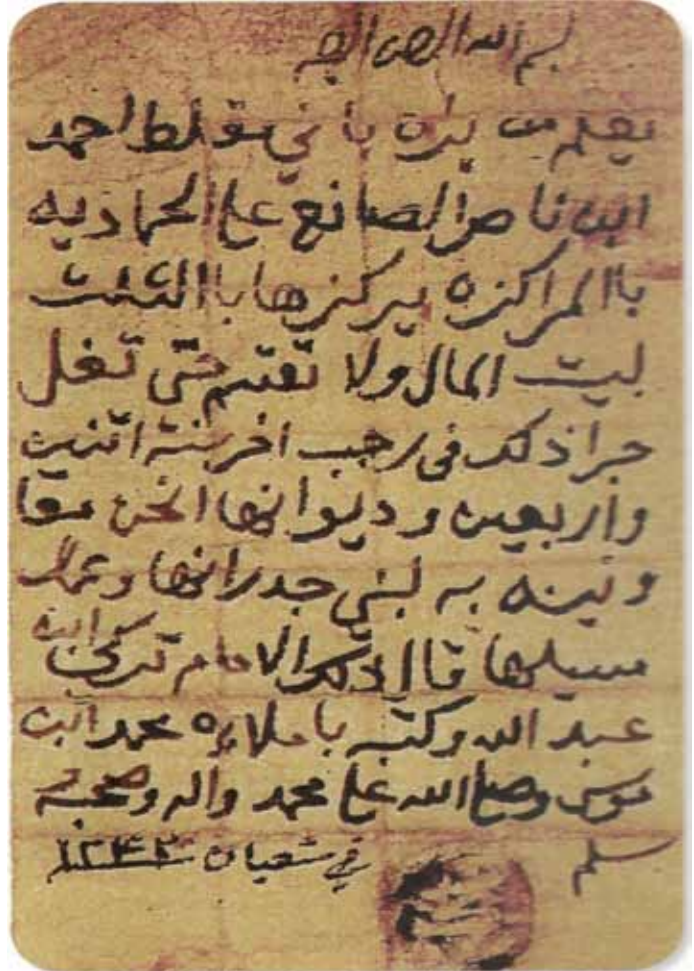 بسم الله الرحمن الرحيم
يعلم من يراه باني مقلط احمد
ابن ناصر الصانع على الحماديه
باالمراكزه يركزها باالثلث
لبيت المال ولا تقتسم حتى تغل
جرا ذلك في رجب اخر سنة اثنين
واربعين وديوانها انحن معا
ونينه به لبني جدرانها وعمار
مسيلها قال ذلك الامام تركي ابن
عبد الله وكتبه باملاءه محمد ابن
موسى وصلى الله على محمد واله وصحبه
وسلم في شعبان ١٢٤٣